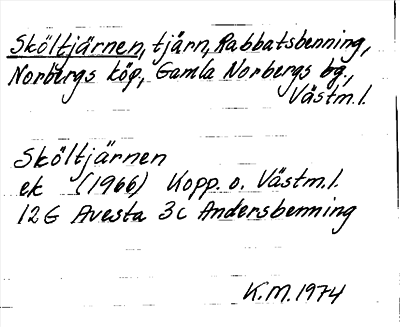 Sköltjärnen, tjärn, Rabbatsbenning,
Norbergs köp., Gamla Norbergs bg.,
Västm.l.
Sköltjärnen
ek (1966) Kopp. o. Västm.l.
12G Avesta 3c Andersbenning
K.M. 1974